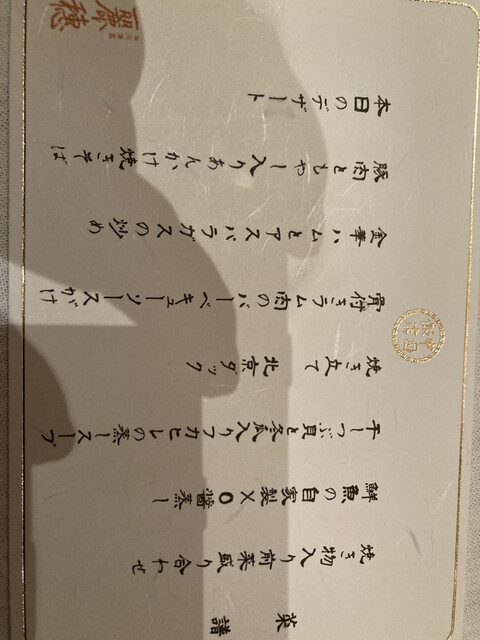 菜譜
焼き物入り前菜盛り合わせ
鮮魚の自家製XO醬蒸し
干しつぶ貝と冬瓜入りフカヒレの蒸しスープ
焼き立て 北京ダック
骨付きラム肉のバーベキューソースがけ
金華ハムとアスパラガスの炒め
豚肉ともやし入りあんかけ焼きそば
本日のデザート
麗穂